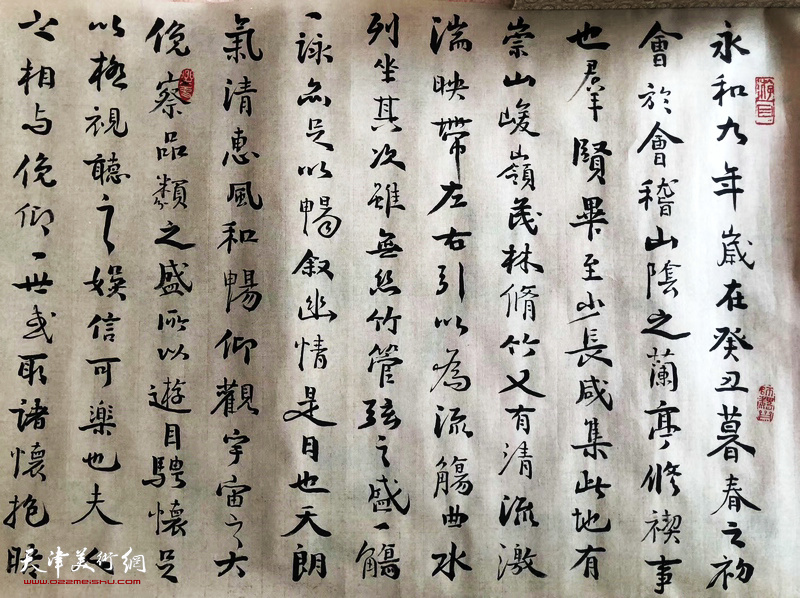 永和九年歲在癸丑暮春之初
會於會稽山陰之蘭亭修禊事
也羣賢畢至少長咸集此地有
崇山峻嶺茂林脩竹又有清流激
湍映帶左右引以為流觴曲水
列坐其次雖無絲竹管弦之盛一觴
一詠亦足以暢叙幽情是日也天朗
氣清惠風和暢仰觀宇宙之大
俛察品類之盛所以遊目騁懷足
以極視聽之娛信可樂也夫人
之相与俛仰一世或取諸懷抱晤
遊目
天津美術網
www.022meishu.com